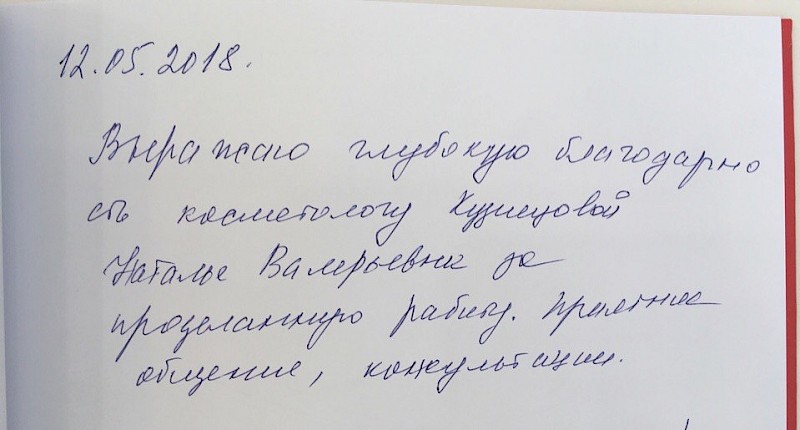 12.05.2018.
Выражаю глубокую благодарно
сть косметологу Кузнецовой
Наталье Валерьевне за
проделанную работу. Приятное
общение, консультации.